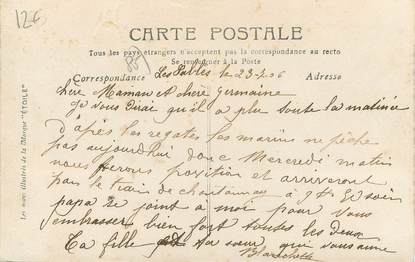 12€
CARTE POSTALE
Tous les pays étrangers n'acceptent pas la correspondance au recto
Se renseigner à la Poste
(85)
Correspondance Les Sables le 23-7-06 Adresse
chère Maman et chère Germaine
Je vous dirai qu'il a plu toute la matinée
d'après les régates les marins ne pêche
pas aujourd'hui donc Mercredi matin
nous serons position et arriveront
par le train de chantonnay à 9h
papa se joint à moi pour vous
embrasser bien fort toutes les deux
Ta fille et ta sœur qui vous aime
Blanchette
Les cartes illustrées de la Marque "ÉTOILE"